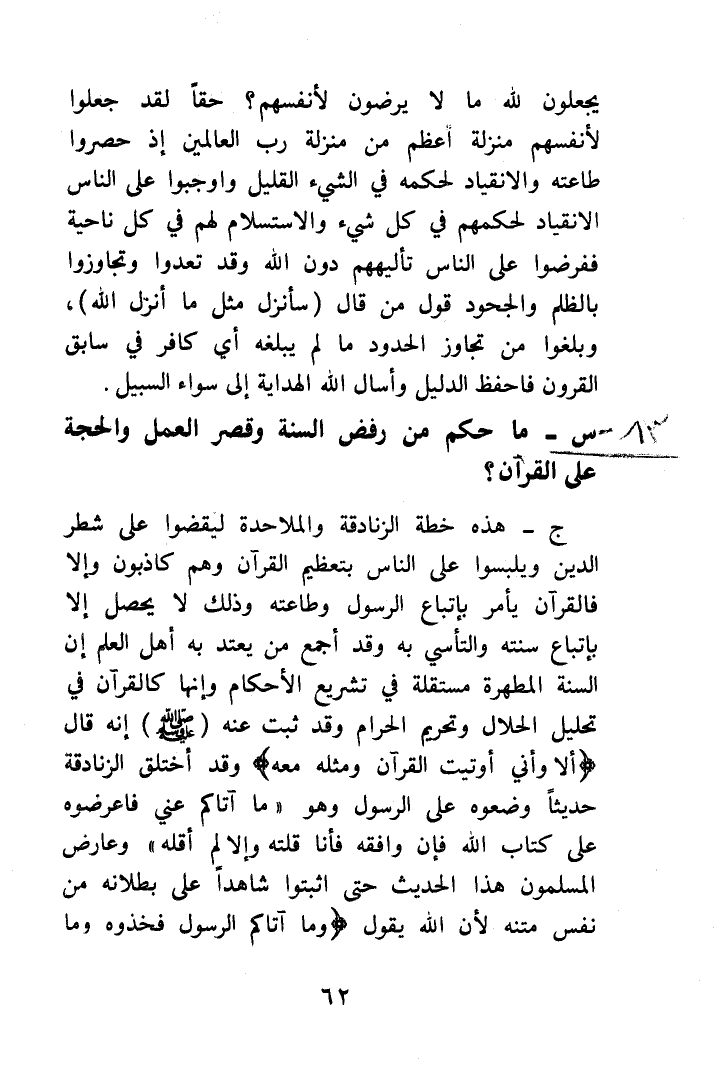 يجعلون لله ما لا يرضون لأنفسهم؟ حقاً لقد جعلوا
لأنفسهم منزلة أعظم من منزلة رب العالمين إذ حصروا
طاعته والانقياد لحكمه في الشيء القليل واوجبوا على الناس
الانقياد لحكمهم في كل شيء والاستسلام لهم في كل ناحية
ففرضوا على الناس تأليههم دون الله وقد تعدوا وتجاوزوا
بالظلم والجحود قول من قال (سأنزل مثل ما أنزل الله)،
وبلغوا من تجاوز الحدود ما لم يبلغه أي كافر في سابق
القرون فاحفظ الدليل وأسال الله الهداية إلى سواء السبيل.
س ـ ما حكم من رفض السنة وقصر العمل والحجة
على القرآن؟
ج ـ هذه خطة الزنادقة والملاحدة ليقضوا على شطر
الدين ويلبسوا على الناس بتعظيم القرآن وهم كاذبون وإلا
فالقرآن يأمر بإتباع الرسول وطاعته وذلك لا يحصل إلا
بإتباع سنته والتأسي به وقد أجمع من يعتد به أهل العلم إن
السنة المطهرة مستقلة في تشريع الأحكام وإنها كالقرآن في
تحليل الحلال وتحريم الحرام وقد ثبت عنه (ﷺ) إنه قال
﴿ألا وأني أوتيت القرآن ومثله معه﴾ وقد أختلق الزنادقة
حديثاً وضعوه على الرسول وهو «ما آتاكم عني فاعرضوه
على كتاب الله فإن وافقه فأنا قلته وإلا لم أقله» وعارض
المسلمون هذا الحديث حتى اثبتوا شاهداً على بطلانه من
نفس متنه لأن الله يقول ﴿وما آتاكم الرسول فخذوه وما
٦٢